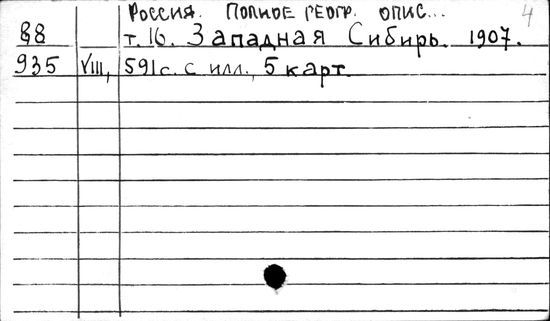 Россия. Полное геогр. опис... 4
88 т. 16. Западная Сибирь. 1907.
935 VIII, 591 с. с илл., 5 карт.